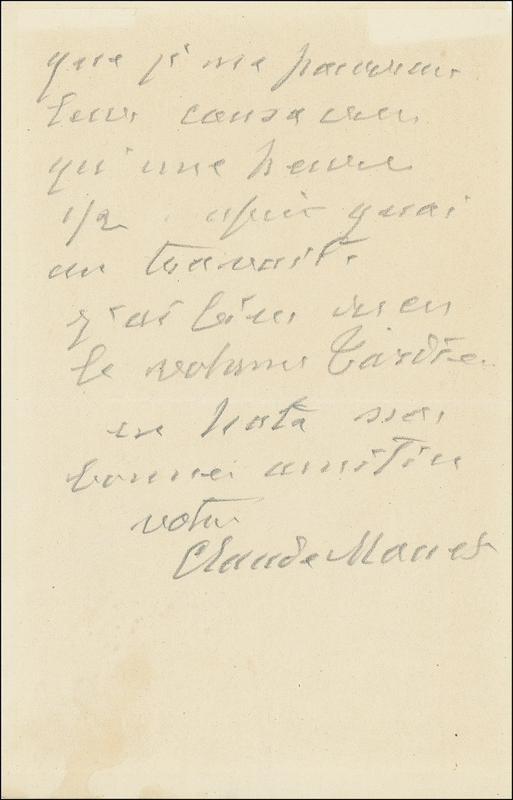 que je ne pourrai
leur consacrer
qu'une heure
1/2 après quoi
au travail.
j'ai bien reçu
le volume Tardieu
en hate mes
bonnes amitiés
votre
Claude Monet